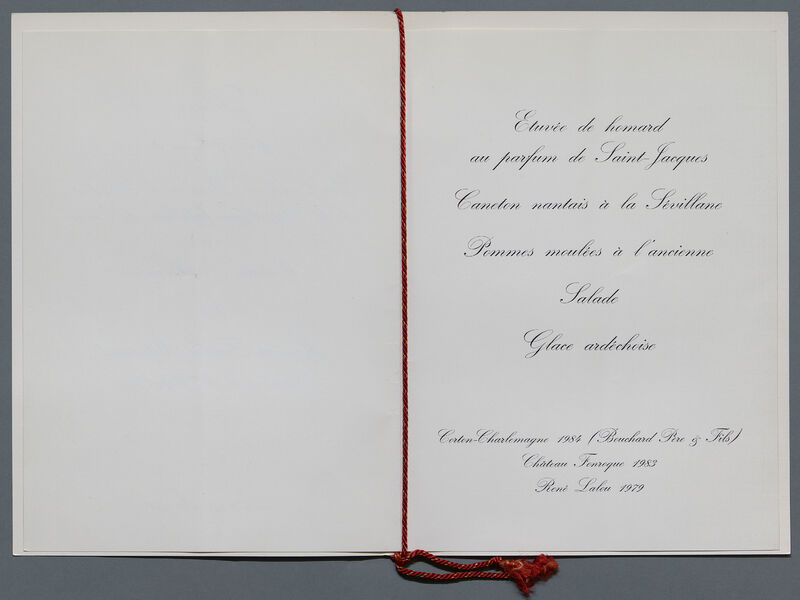 Etuvée de homard
au parfum de Saint-Jacques
Caneton nantais à la Sévillane
Pommes moulées à l'ancienne
Salade
Glace ardéchoise
Corton-Charlemagne 1984 (Bouchard Père & Fils)
Château Fonroque 1983
René Lalou 1979